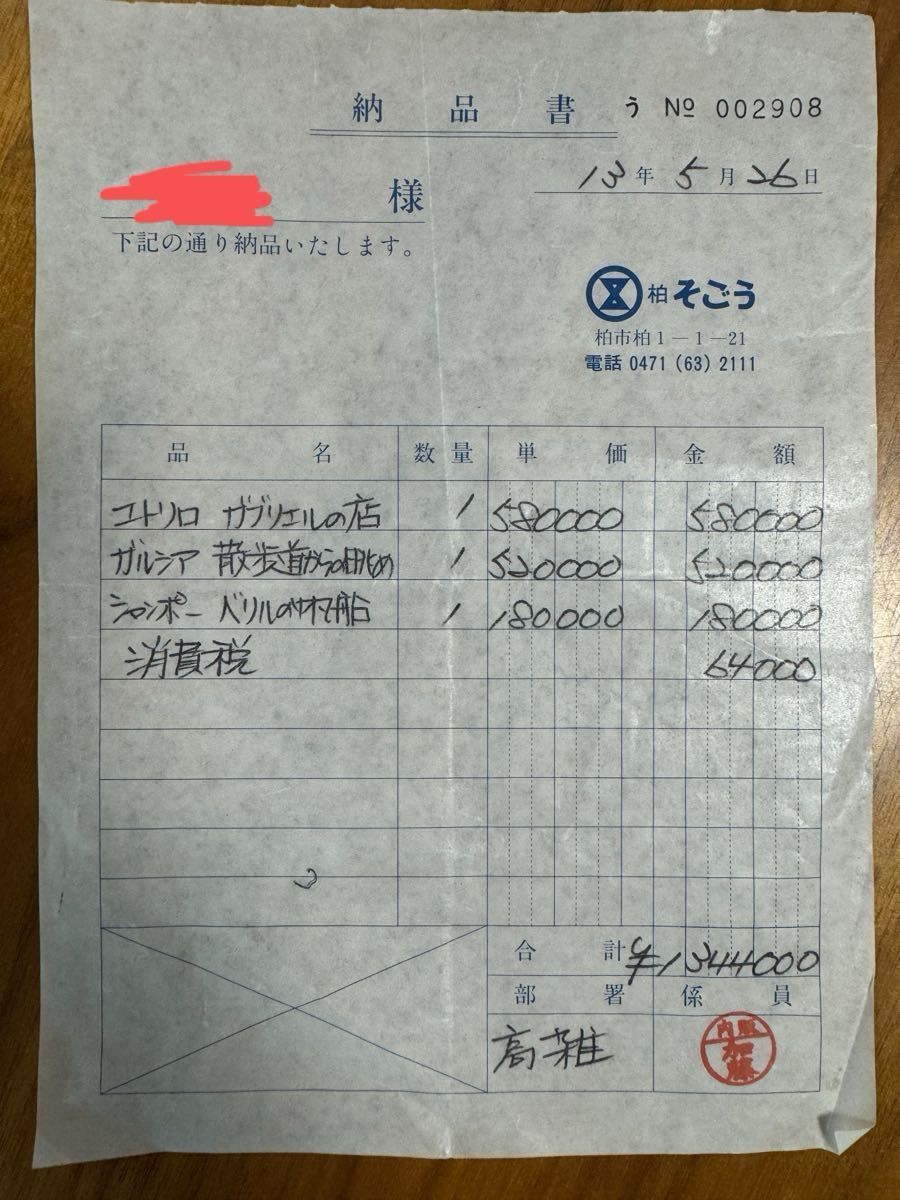 納品書 う № 002908
13年5月26日
様
下記の通り納品いたします。
柏 そごう
柏市柏1―1―21
電話 0471 (63) 2111
品名 数量 単価 金額
コトリロ ガブリエルの店 1 580000 580000
ガルシア 散歩道からの眺め 1 520000 520000
シャンポー ベリルの帆船 1 180000 180000
消費税 64000
合計 ¥1344000
部署 係員
高雑 加藤